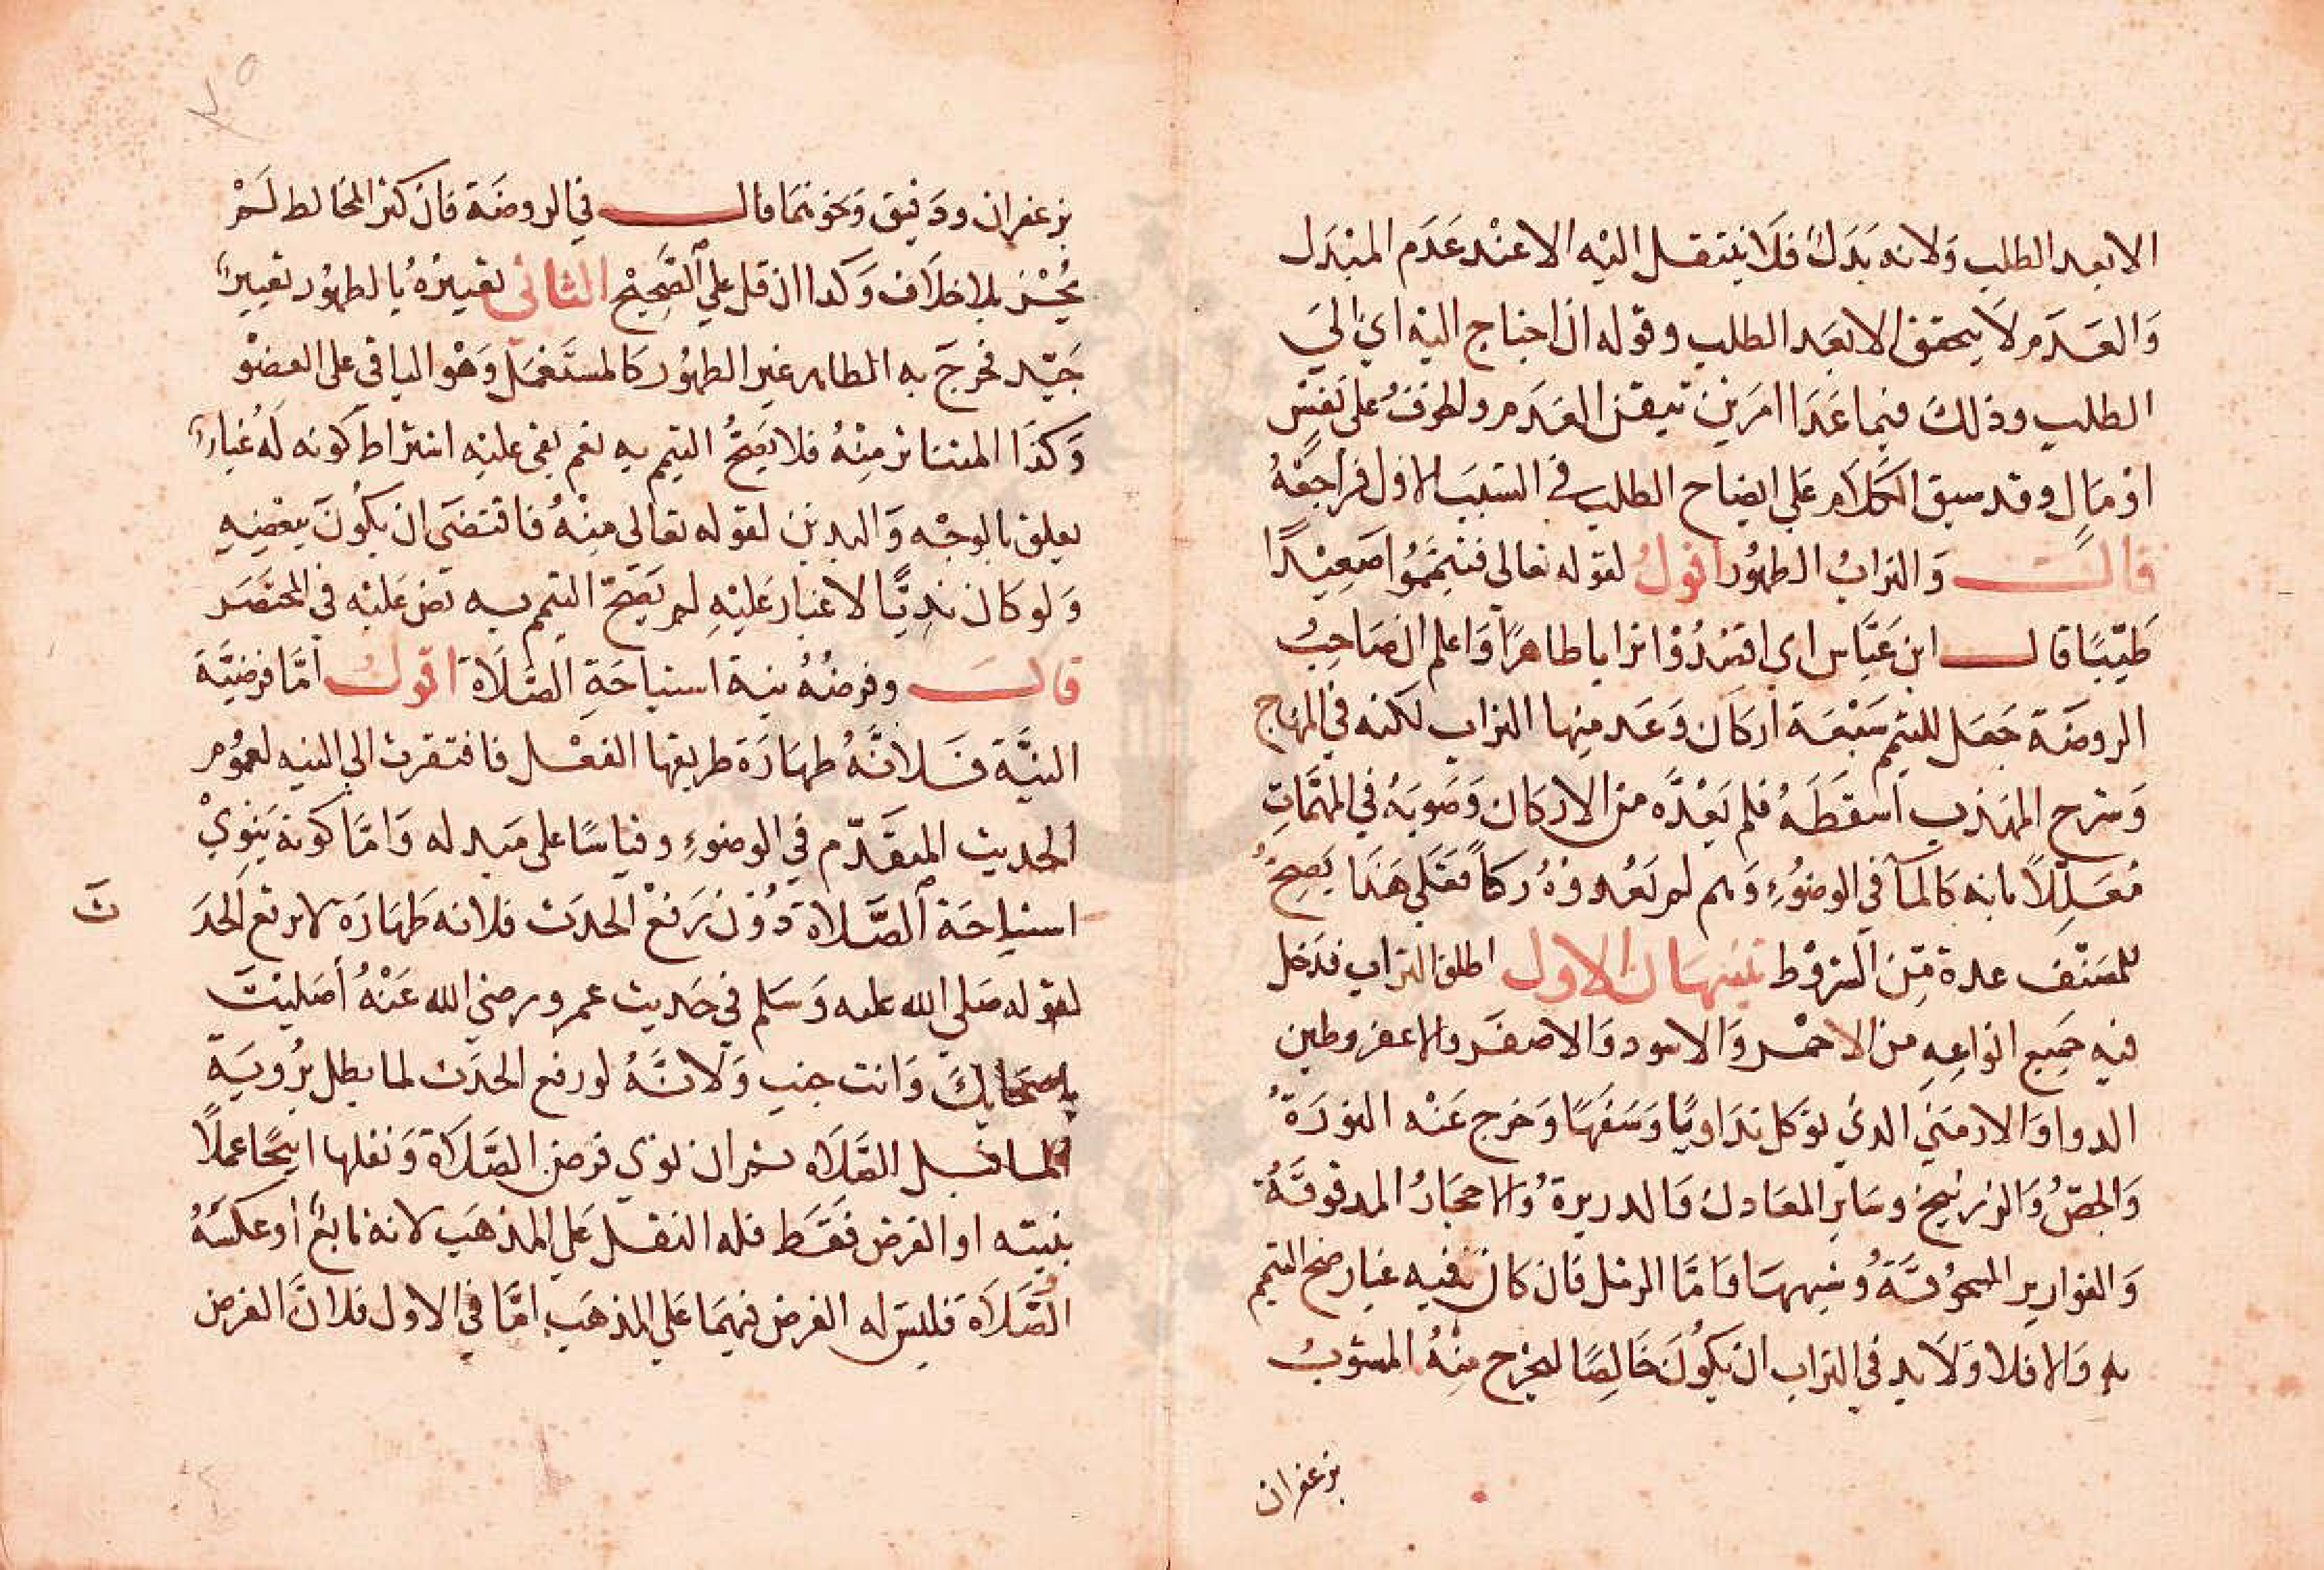 الا بعد الطلب وَلانه بَدَلٌ فلَا ينتقل اليْه الا عنْد عَدَم المبْدَل
وَالعَدَم لَا يتحقق الا بعَد الطلب وقوله ان احتاج اليْه اي الىَ
الطلب وذلكَ فيما عَدَا امرَين تيقن العَدَم والخوفُ على نفسٍ
اوْ مَالٍ وقد سبق الكَلَام عَلي ايضاح الطلب في السّبَب الاول فراجعْهُ
قالـــت وَالترابُ الطهُور اقولُ لقوله تعالى فتيَممُوا صَعِيْدًا
طَيّبًا قالـــ ابن عَبَّاس اى اقصُدُوْا ترابا طاهرًا وَاعلم ان صَاحِبُ
الروضَة جَعَل للتيَمم سَبْعَة اَركَان وَعَد منِها التراب لكنه في المنهاج
وَشرح المهَذب اَسْقَطَهُ فلم يَعُدَّه من الاركان وَصَوبَهُ في المهمَّاتِ
مُعَلِّلًا بانه كَالمَآ في الوضُوْءِ وَهم لم يَعُدوْهُ ركنًا فعَلى هَذَا يَصِحُ
للمصَنّف عدة مّنَ الشرُوْط تنبيهَان الاول اطلق التراب فدَخل
فيه جَميع انواعِهِ من الاحْمر وَالاسود وَالاصفَر والاعفر وطين
الدوا وَالارمَني الذي يوكل تدَاويًا وَسَفَهًا وَخرج عَنْه النورَةُ
وَالجصّ وَالزرنيخ وسَايرِ المعَادن وَالذريرةُ وَالاحجَارُ المدقوقَةُ
وَالقوارير المسحُوقَةُ وَشبهها وَامَّا الرمْل فان كان فيه غبار صَح التيمم
به وَالا فلا وَلَا بد في التراب ان يكُونَ خَالِصًا ليخرج مِنْهُ المشوبُ
بزعفران
بزعفران ودَقيق وَنحوهمَا قالـــ في الروضَة فان كثر المخالط لَمْ
يُجْز بلا خلَاف وَكذا ان قل علي الصَّحِيْح الثاني تعبيْرهُ بالطهُور تعبيرٌ
جَيّد فخرجَ به الطاهر غير الطهُور كالمستَعْمَل وَهْو الباقي على العضْو
وَكذَا المتناثر مِنْهُ فلا يَصِحُّ التيمم به نعَم بقي عليْه اشتراط كَونه لَهُ غُبارٌ
يعلق بالوجْه وَاليدين لقوله تعالى مِنْهُ فاقتضَى ان يكُونَ ببعْضِهِ
وَلو كان نديًّا لا غبار عَليْهِ لم يَصِحّ التيمم به نص عَليْه في المختصَر
قالـــ وفرضُهُ نية استباحَةِ الصَّلَاة اقولـــ اَمَّا فرضيَّة
النيَّة فَلانَّهُ طهَارَة طريقها الفعْل فافتقرت الي النيه لعمُوم
الحديث المتقَدّم في الوضوءِ وقياسًا على مبدله وَامَّا كونه يَنوِيْ
استباحَة الصَّلاة دُوْن رَفعْ الحدَث فلانه طَهَارَة لا ترفع الحدَ
ثَ
لقوله صَلى الله عليه وَسَلم في حَديث عمرو رضيَ الله عَنْهُ اَصَليْتَ
باصحَابكَ وَانت جنب وَلانَّهُ لو رفع الحدَث لما بطل برُويَةِ
الما قبل الصَّلَاه ثم ان نوى فرضَ الصَّلَاة وَنفلها ابيحَا عملًا
بنيته او الفرض فقَط فله النفل عَلي المذهَب لانه تابعٌ اَو عكسَهُ
الصَّلَاة فليسَ له الفرض فيهمَا عَلي المذهَب امَّا في الاول فلان الفرض